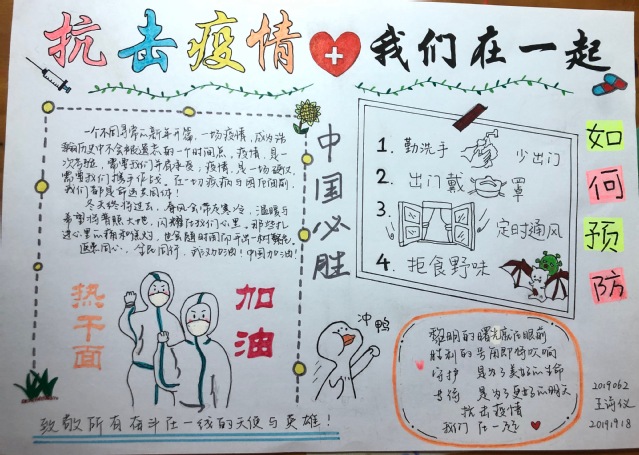 抗击疫情 我们在一起
一个不同寻常的新年开篇,一场疫情,成为浩
历史中不会被遗忘的一个时间点。疫情,是一
次考验,需要我们并肩承受;疫情,是一场硬仗,
需要我们携手作战。在一切疾病与困厄面前,
我们都是命运共同体!
冬天终将过去,春风会带庅寒冷,温暖与
希望将普照大地,闪耀在我们心里。那些扎
进心里的
医患同心,全民同行,武汉加油!中国加油!
中国必胜
热干面
加油
冲鸭
致敬所有奋斗在一线的天使与英雄!
1. 勤洗手 少出门
2. 出门戴 罩
3. 定时通风
4. 拒食野味
如何预防
黎明的曙光就在眼前
胜利的号角即将吹响
守护 是为了美好的生命
是为了更好的明天
抗击疫情
我们在一起
2019062
王诗仪
20191918